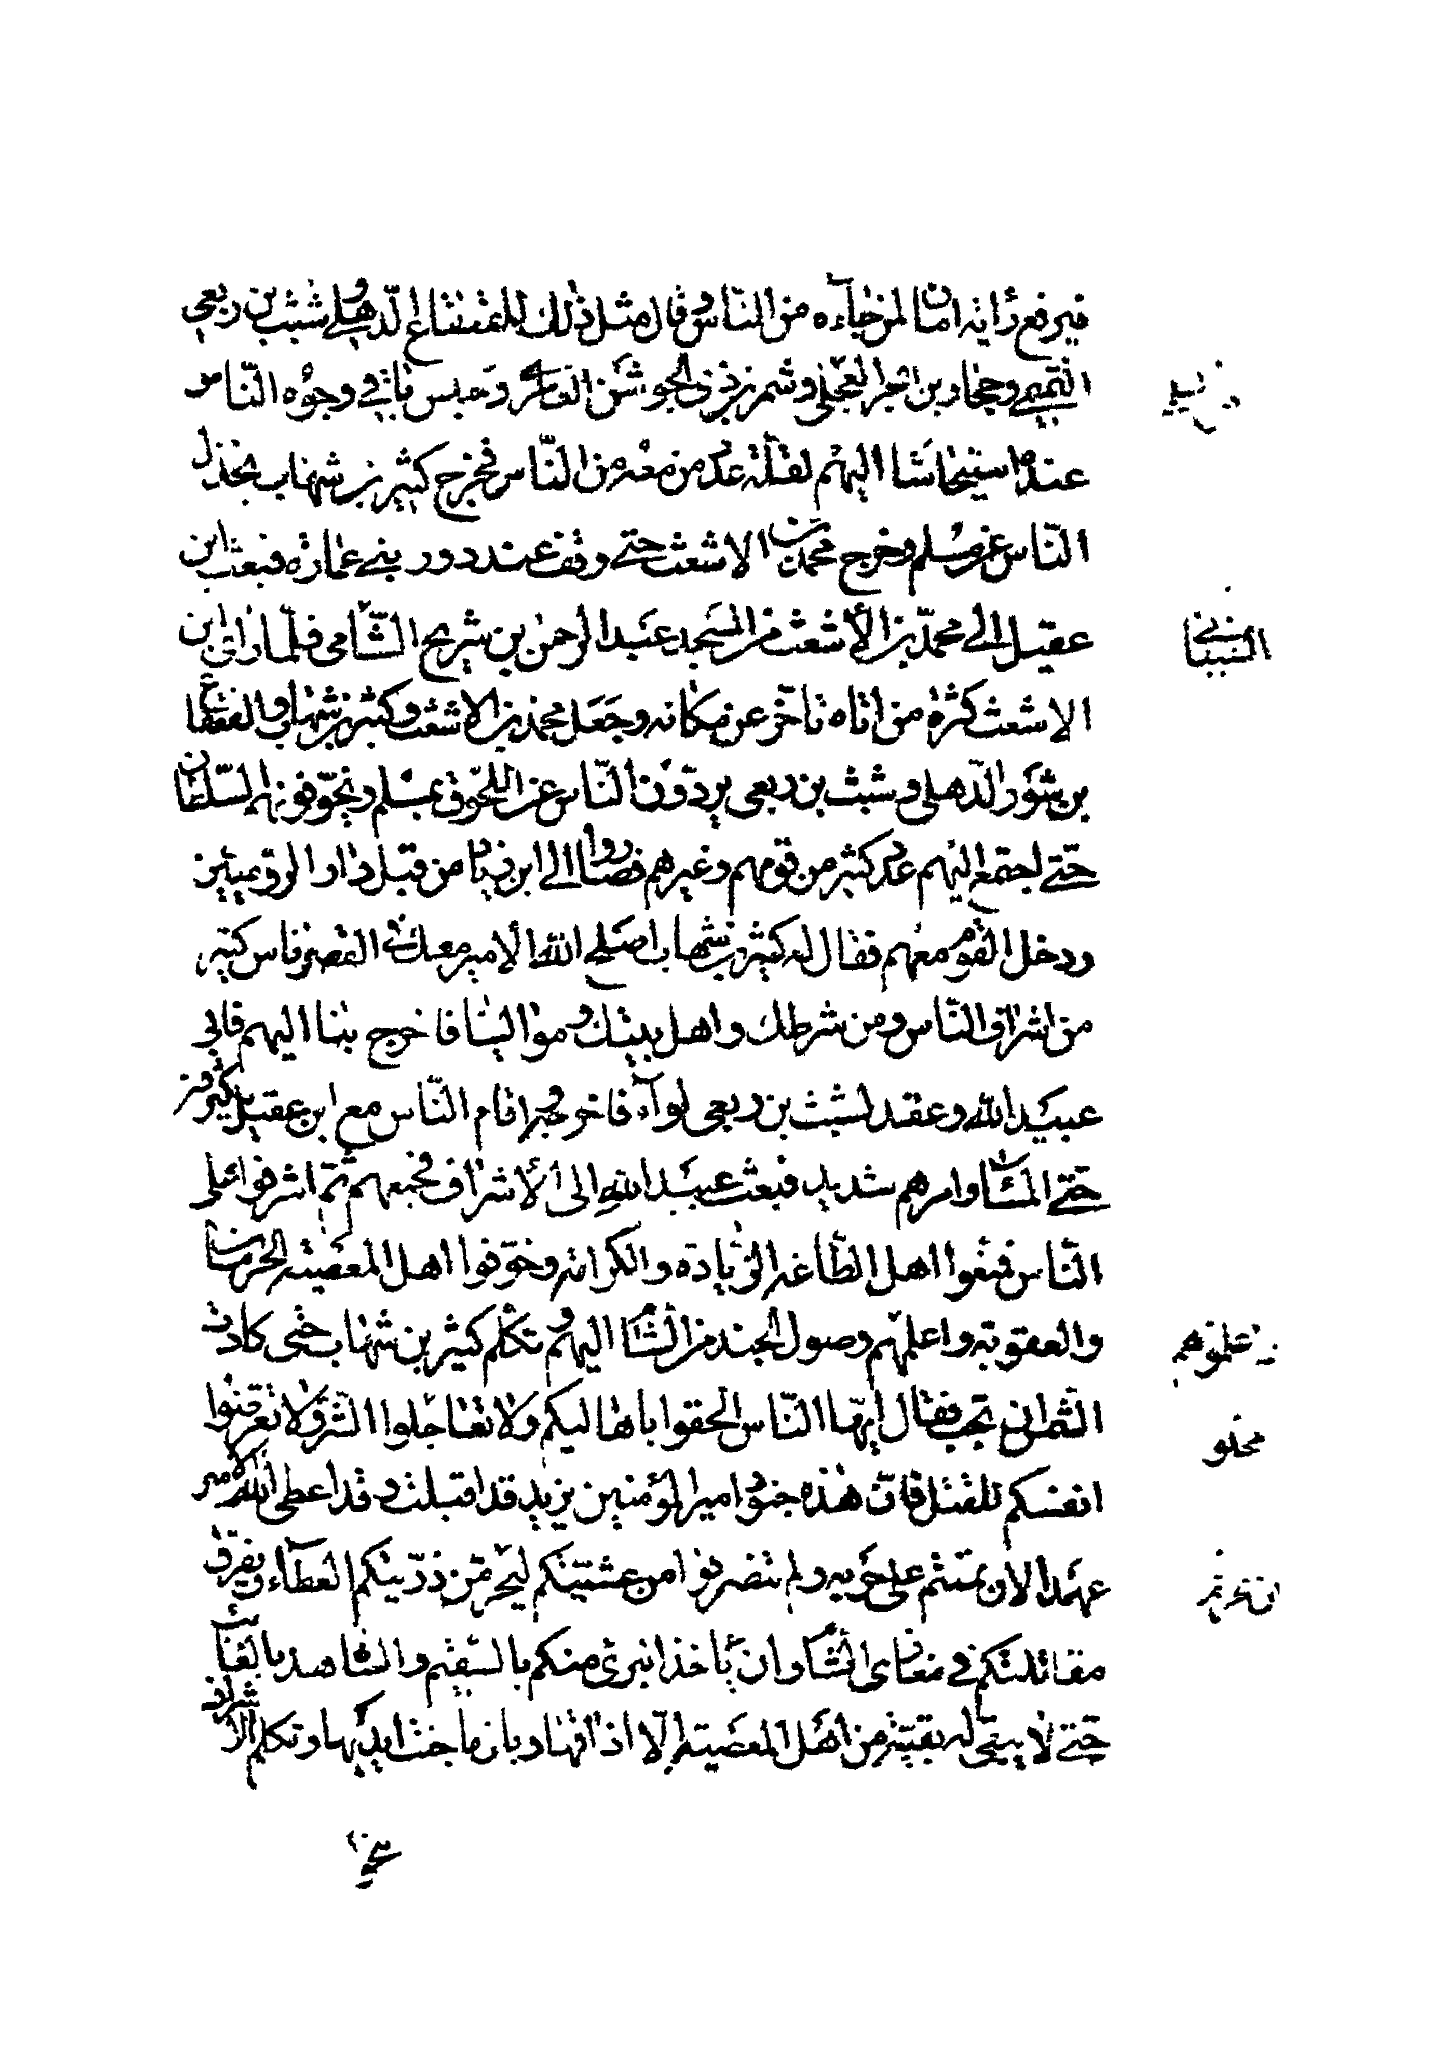 فيرفع راية امان لمن جاءه من الناس وقال مثل ذلك للقعقاع الذهلي وشبث بن ربعي
التميمي وحجار بن ابجر العجلي وشمر بن ذي الجوشن العامري وحبس باقي وجوه الناس
عنده استيحاشا اليهم لقلة عدد من معه من الناس فخرج كثير بن شهاب يخذل
الناس عن مسلم وخرج محمد بن الاشعث حتى وقف عند دور بني عمارة فبعث ابن
عقيل الى محمد بن الأشعث من المسجد عبد الرحمن بن شريح الشامي فلما راى ابن
الاشعث كثرة من اتاه تأخر عن مكانه وجعل محمد بن الاشعث وكثير بن شهاب والقعقاع
بن شور الذهلي وشبث بن ربعي يردون الناس عن اللحوق بمسلم ويخوفونهم السلطان
حتى اجتمع اليهم عدد كثير من قومهم وغيرهم فصاروا الى ابن زياد من قبل دار الروميين
ودخل القوم معهم فقال له كثير بن شهاب اصلح الله الأمير معك في القصر ناس كثير
من اشراف الناس ومن شرطك واهل بيتك وموالينا فاخرج بنا اليهم فابى
عبيد الله وعقد لشبث بن ربعي لواء فاخرجه واقام الناس مع ابن عقيل يكثرون
حتى المساء وامرهم شديد فبعث عبيد الله الى الأشراف فجمعهم ثم اشرفوا على
الناس فمنوا اهل الطاعة الزيادة والكرامة وخوفوا اهل المعصية الحرمان
والعقوبة واعلموهم وصول الجند من الشام اليهم وتكلم كثير بن شهاب حتى كادت
الشمس ان تجب فقال ايها الناس الحقوا باهاليكم ولا تعاجلوا الشر ولا تعرضوا
انفسكم للقتل فان هذه جنود امير المؤمنين يزيد قد اقبلت وقد اعطى الله الأمير
عهدا لان تممتم على حربه ولم تنصرفوا من عشيتكم ليحرمن ذريتكم العطاء ويفرق
مقاتلتكم في مغازي الشام وان يأخذ البريء منكم بالسقيم والشاهد بالغائب
حتى لا يبقى له بقية من اهل المعصية إلا اذاقها وبال ما جنت ايديها وتكلم الأشراف